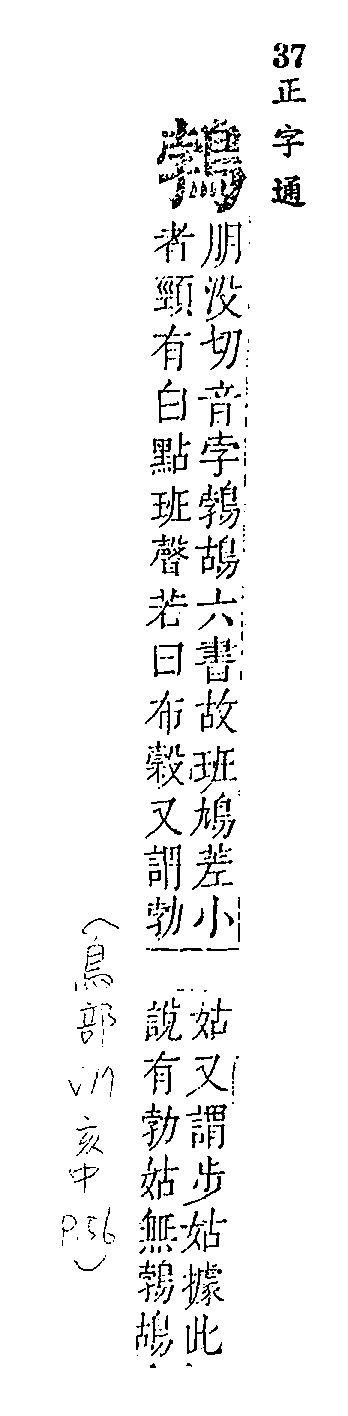 37正字通
鵓
朋没切音孛鵓鴣六書故班鳩差小
者頸有白點班聲若曰布穀又謂勃
姑又謂步姑據此
說有勃姑無鵓鴣
(鳥部
V17
亥中
P.56)